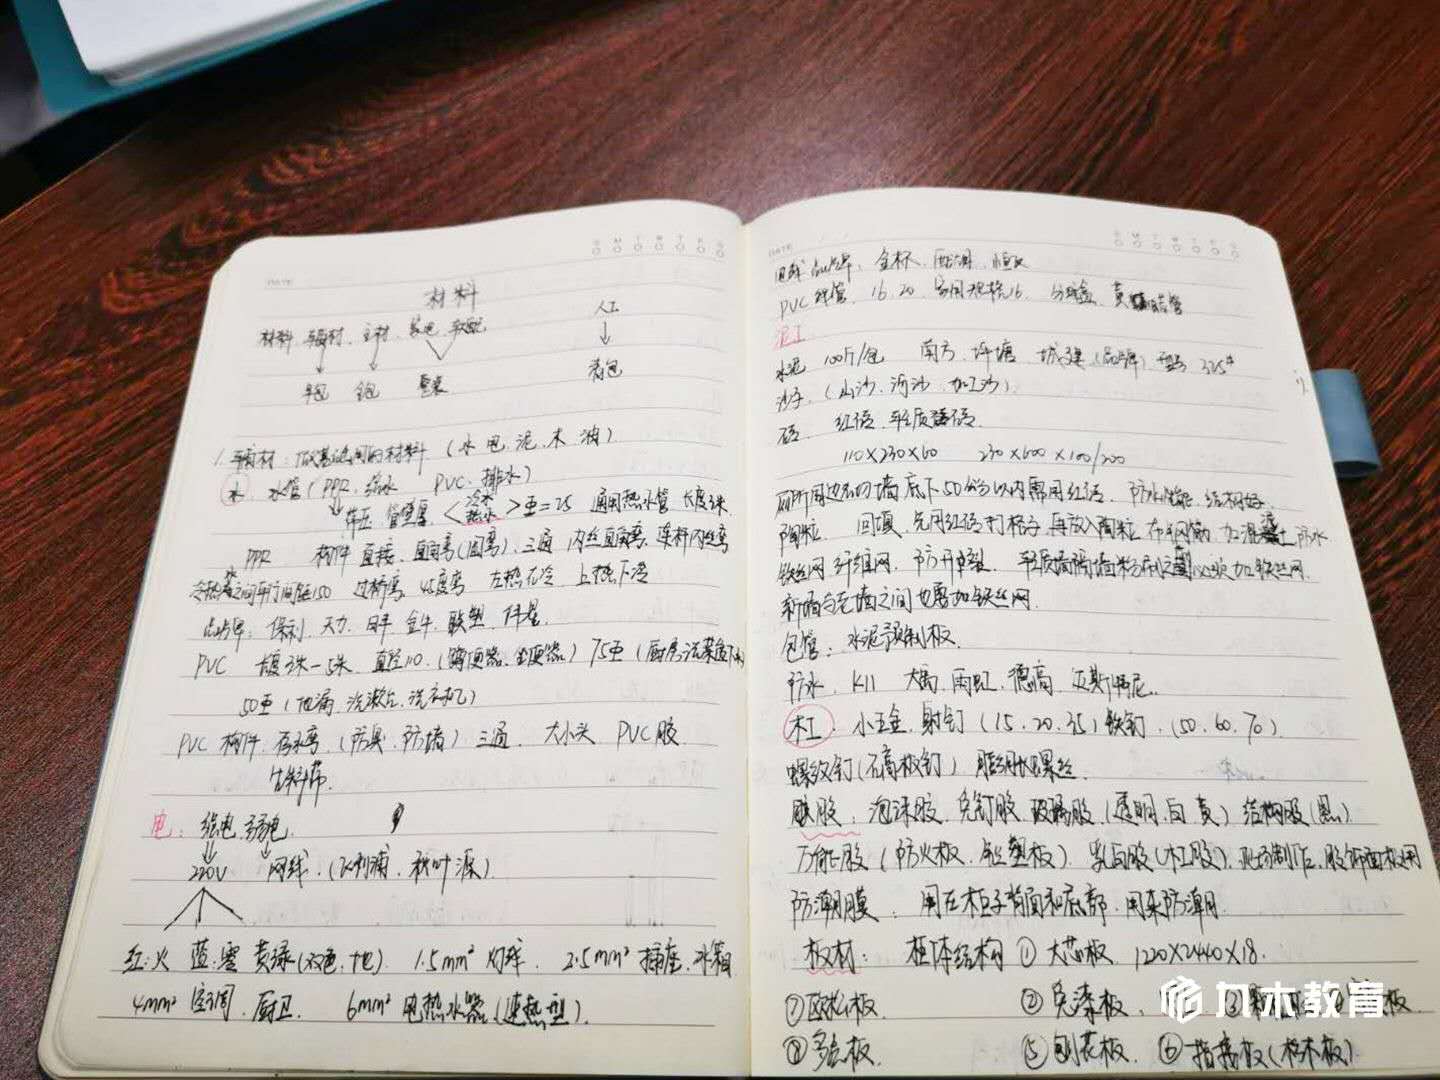 DATE
S M T W T F S
材料
材料 辅材、主材、家电、软配
人工
半包 全包 整装
清包
1.辅材：做基础用的材料（水、电、泥、木、油）
水、水管（PPR、给水 PVC、排水）
管壁厚 <冷水 热水> 通用热水管 长度3米
PPR 构件 直接、直角弯、三通、内丝直角弯、连杆内丝弯
冷热水之间平行间距150 过桥弯、45度弯 左热右冷 上热下冷
品牌：保利、天力、日丰、金牛、联塑、伟星
PVC 长度3米—5米 直径110（蹲便器、坐便器）75（厨房、洗菜盆下水）
50（地漏、洗漱台、洗衣机）
PVC 构件 存水弯（防臭、防堵）三通、大小头 PVC胶
生料带
电：强电 弱电
220V 网线（飞利浦、秋叶源）
红：火 蓝：零 黄绿（双色、地） 1.5mm² 灯线 2.5mm² 插座、冰箱
4mm² 空调、厨卫 6mm² 电热水器（速热型）
DATE
S M T W T F S
电线品牌：金杯、
PVC线管 16、20、家用规格16
泥工
水泥 100斤/包 南方、坪塘 （品牌）型号 325#
沙子（山沙、河沙、加工沙）
砖 红砖、轻质砖
110×230×60 230×600×100/200
厕所周边的墙底下50公分以内需用红砖 防水性能、结构好
陶粒 回填 先用红砖打格子、再放入陶粒 布钢筋 加混凝土 防水
铁丝网 纤维网 防开裂 必须加铁丝网
新墙与老墙之间也要加铁丝网
包管：水泥预制板
防水、K11 大禹、雨虹、德高
木工 小五金、射钉（15、20、35）铁钉（50、60、70）
螺纹钉（石膏板钉）膨胀螺丝
胶：泡沫胶、免钉胶 玻璃胶（透明、白、黄）结构胶（黑）
万能胶（防火板、铝塑板）乳白胶（木工胶）现场制作、贴饰面板用
防潮膜：用在柜子背面和底部、用来防潮
板材：柜体结构 ①大芯板 1220×2440×18
②欧松板 ③免漆板
④多层板 ⑤刨花板 ⑥指接板（杉木板）
力木教育